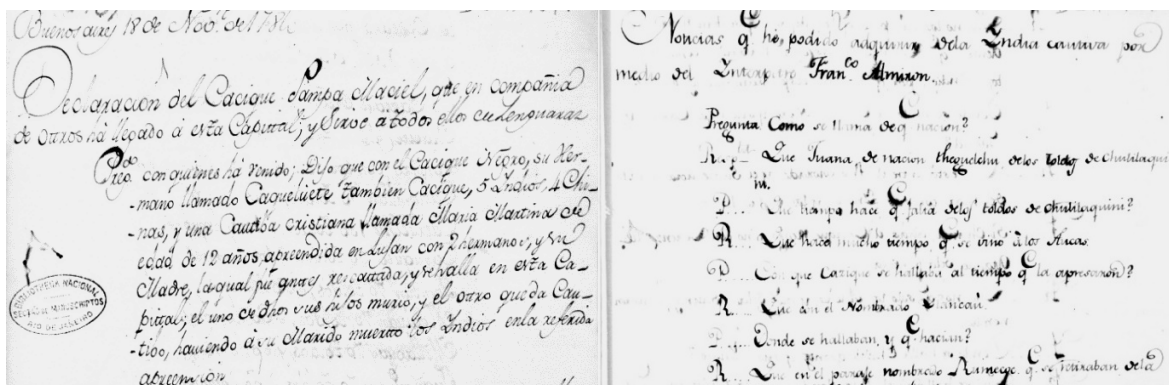 Buenos aires 18 de Nov.e de 178
Declaración del Cacique Pampa Maciel, que en compañia
de otros ha llegado á esta Capital; y Sirve a todos ellos de Lenguaraz
Preg.do con quienes ha venido; Dijo que con el Cacique Negro, su Her-
-mano llamado Caqueliiete tambien Cacique, 5 Indios, 4 Chi-
-nas, y una Cautiva cristiana llamada Maria Martina de
edad de 12 años, apreendida en Lujan con 2 hermanos, y su
Madre, la qual fue antes rescatada, y se halla en esta Ca-
pital; el uno de dhos sus hijos murio, y el otro queda Cau-
-tivo, haviendo á su Marido muerto los Indios en la referida
apreension
BIBLIOTHECA NACIONAL
SECÇÃO MANUSCRIPTOS
RIO DE JANEIRO
Noticias q he podido adquirir dela India cautiva por
medio del Interprete Fran.co Almiron.
Pregunta Como se llama de q nacion?
R Que Juana, de nacion theguelchu delos toldos de Chulilaqui
ni.
P Que tiempo hace q falta delos toldos de Chulilaquini?
R. Que hace mucho tiempo q se vino á los Aucas.
P Con que Cacique se hallaba al tiempo q la apresaron?
R. Que con el Nombrado
P Donde se hallaban, y q hacian?
R. Que en el parage nombrado q se retiraban dela